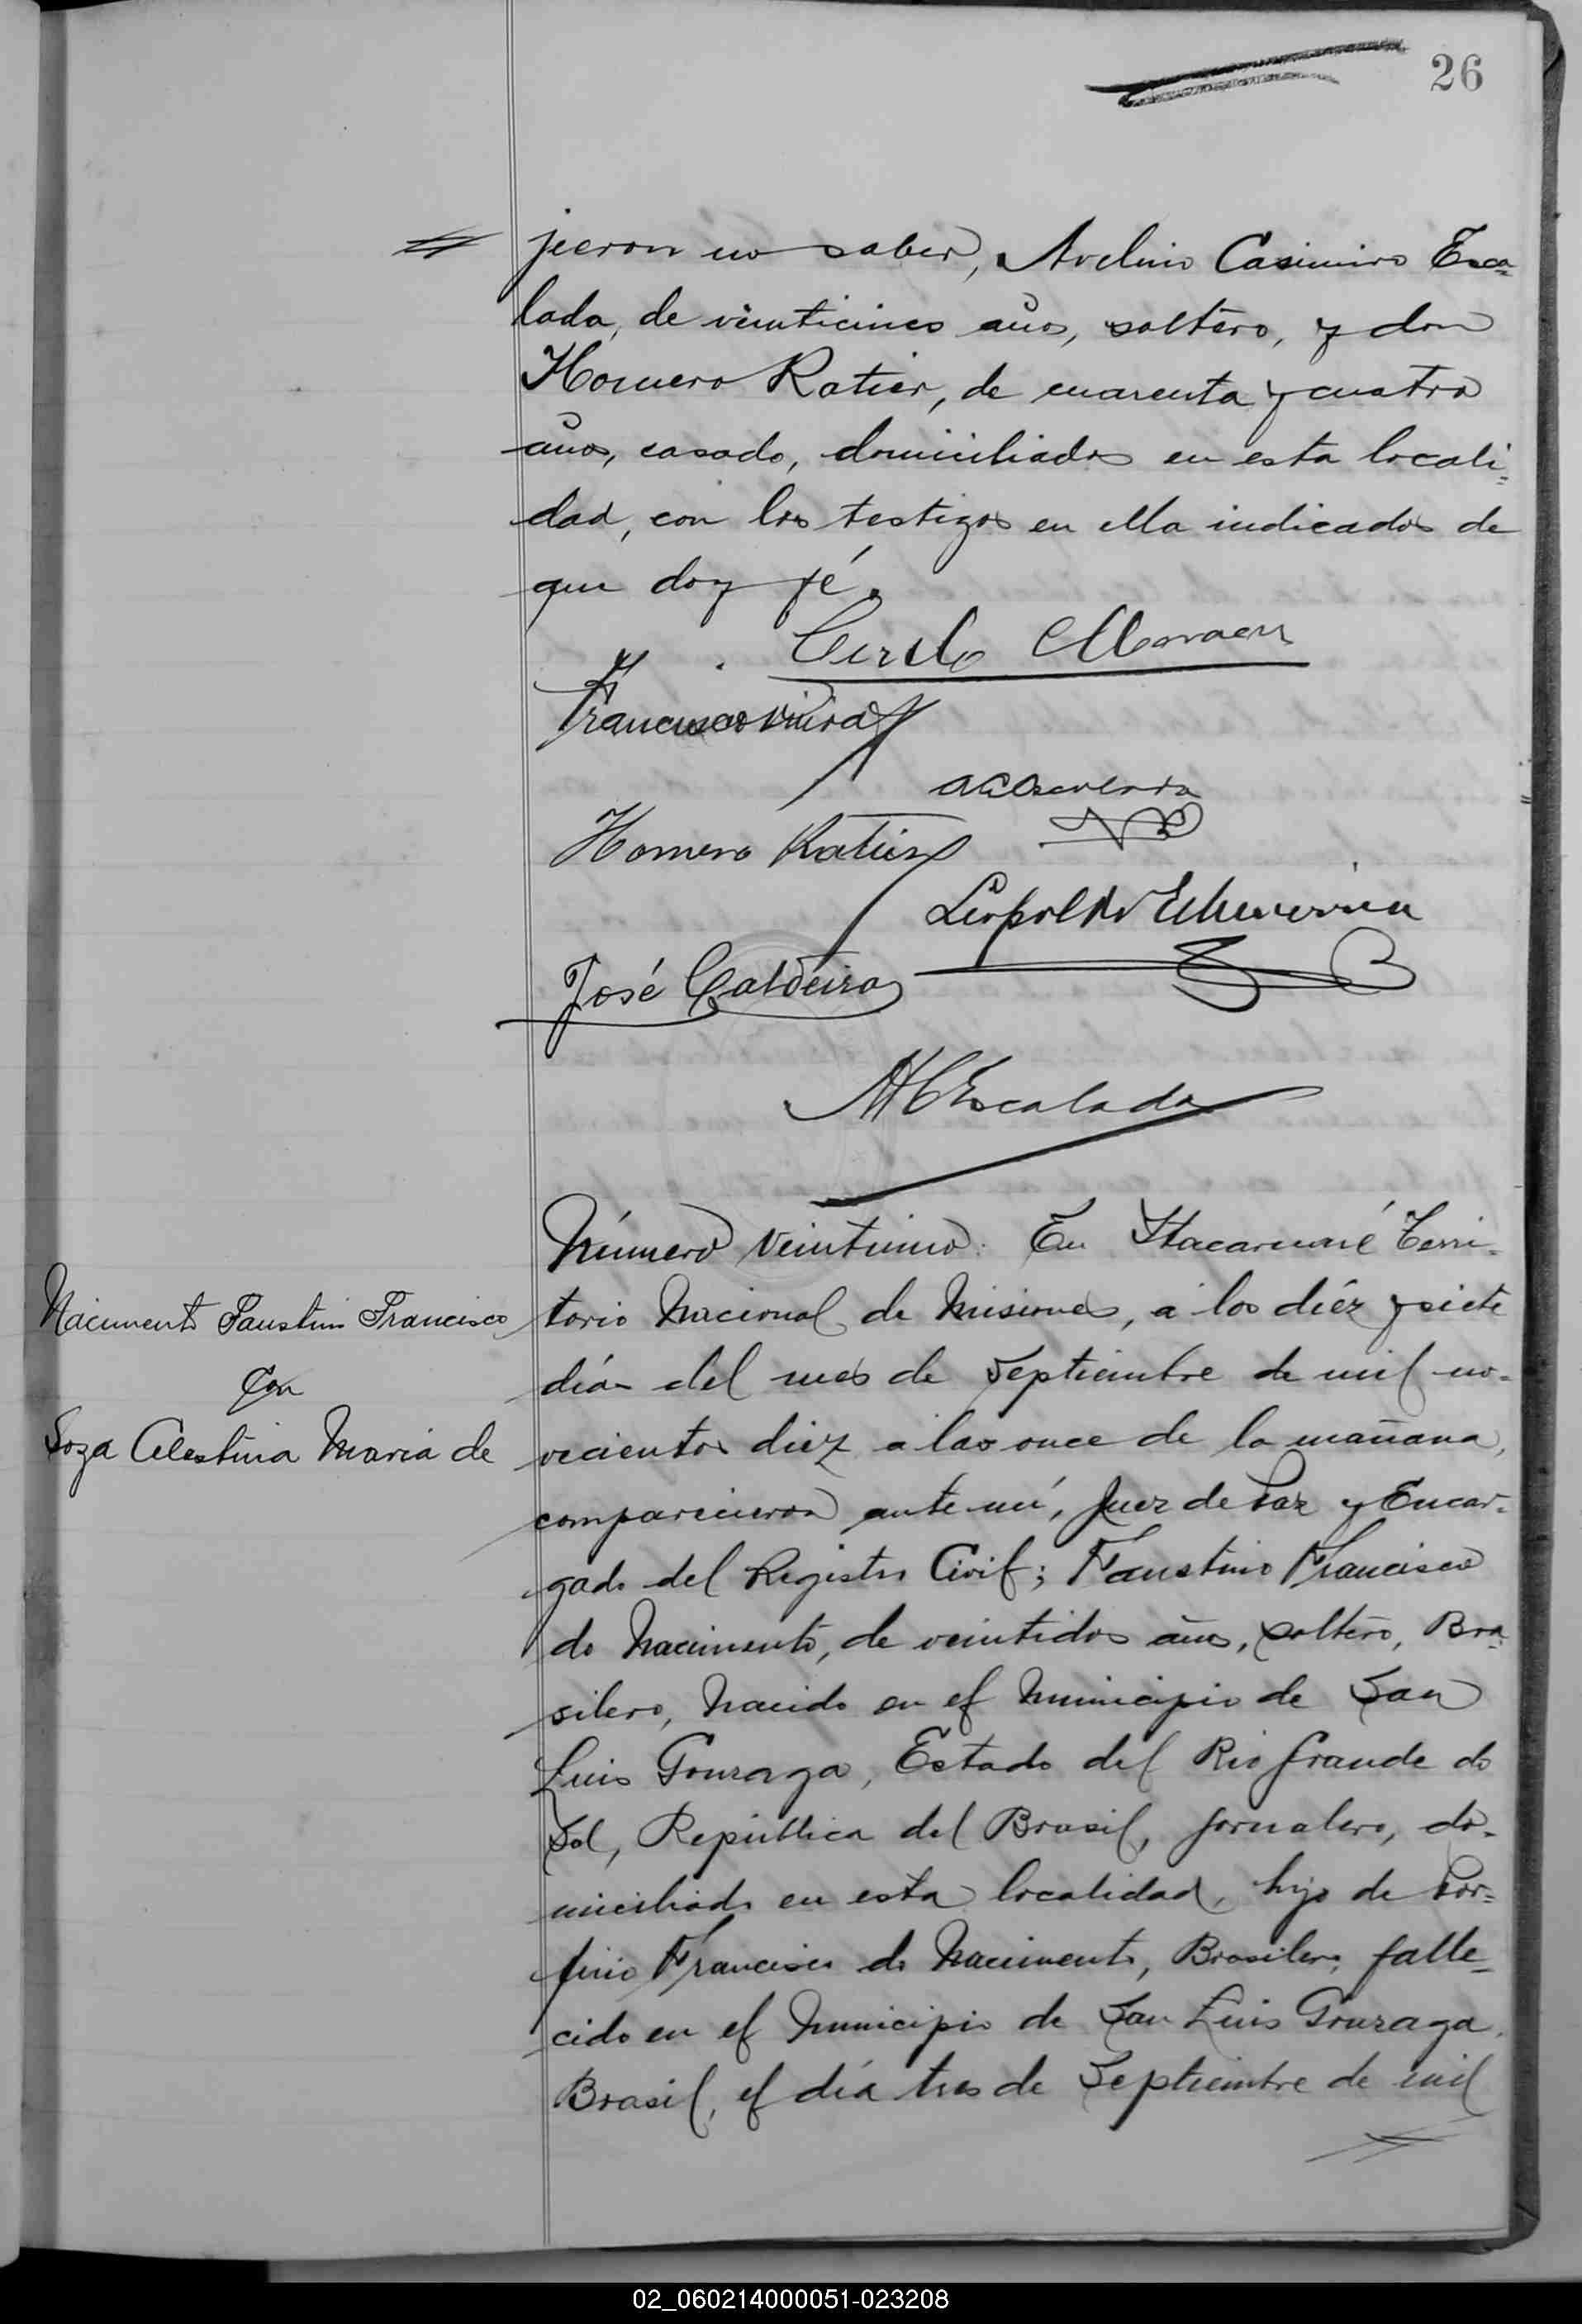 26
jieron no saber, Avelino Casimiro Esca=
lada, de veinticinco años, soltero, y don
Homero Ratier, de cuarenta y cuatro
años, casado, domiciliados en esta locali=
dad, con los testigos en ella indicados de
que doy fé.
Cirilo
Francisco Vieira
Homero Ratier
Leopoldo Echeverria
José Caldeira
Escalada
Número veintiuno: En Itacaruaré Terri-
torio Nacional de Misiones, a los diéz y siete
Nacimento Faustino Francisco
días del mes de Septiembre de mil no-
con
vecientos diez a las once de la mañana,
Soza Celestina Maria de
comparecieron ante mí, Juez de Paz y Encar-
gado del Registro Civil; Faustino Francisco
do Nacimento, de veintidos años, soltero, Bra=
silero, nacido en el Municipio de San
Luis Gonzaga, Estado del Rio Grande do
Sol, República del Brasil, jornalero, do-
miciliado en esta localidad, hijo de Por=
firio Francisco do Nacimento, Brasilero, falle=
cido en el Municipio de San Luis Gonzaga,
Brasil, el día tres de Septiembre de mil
02_060214000051-023208